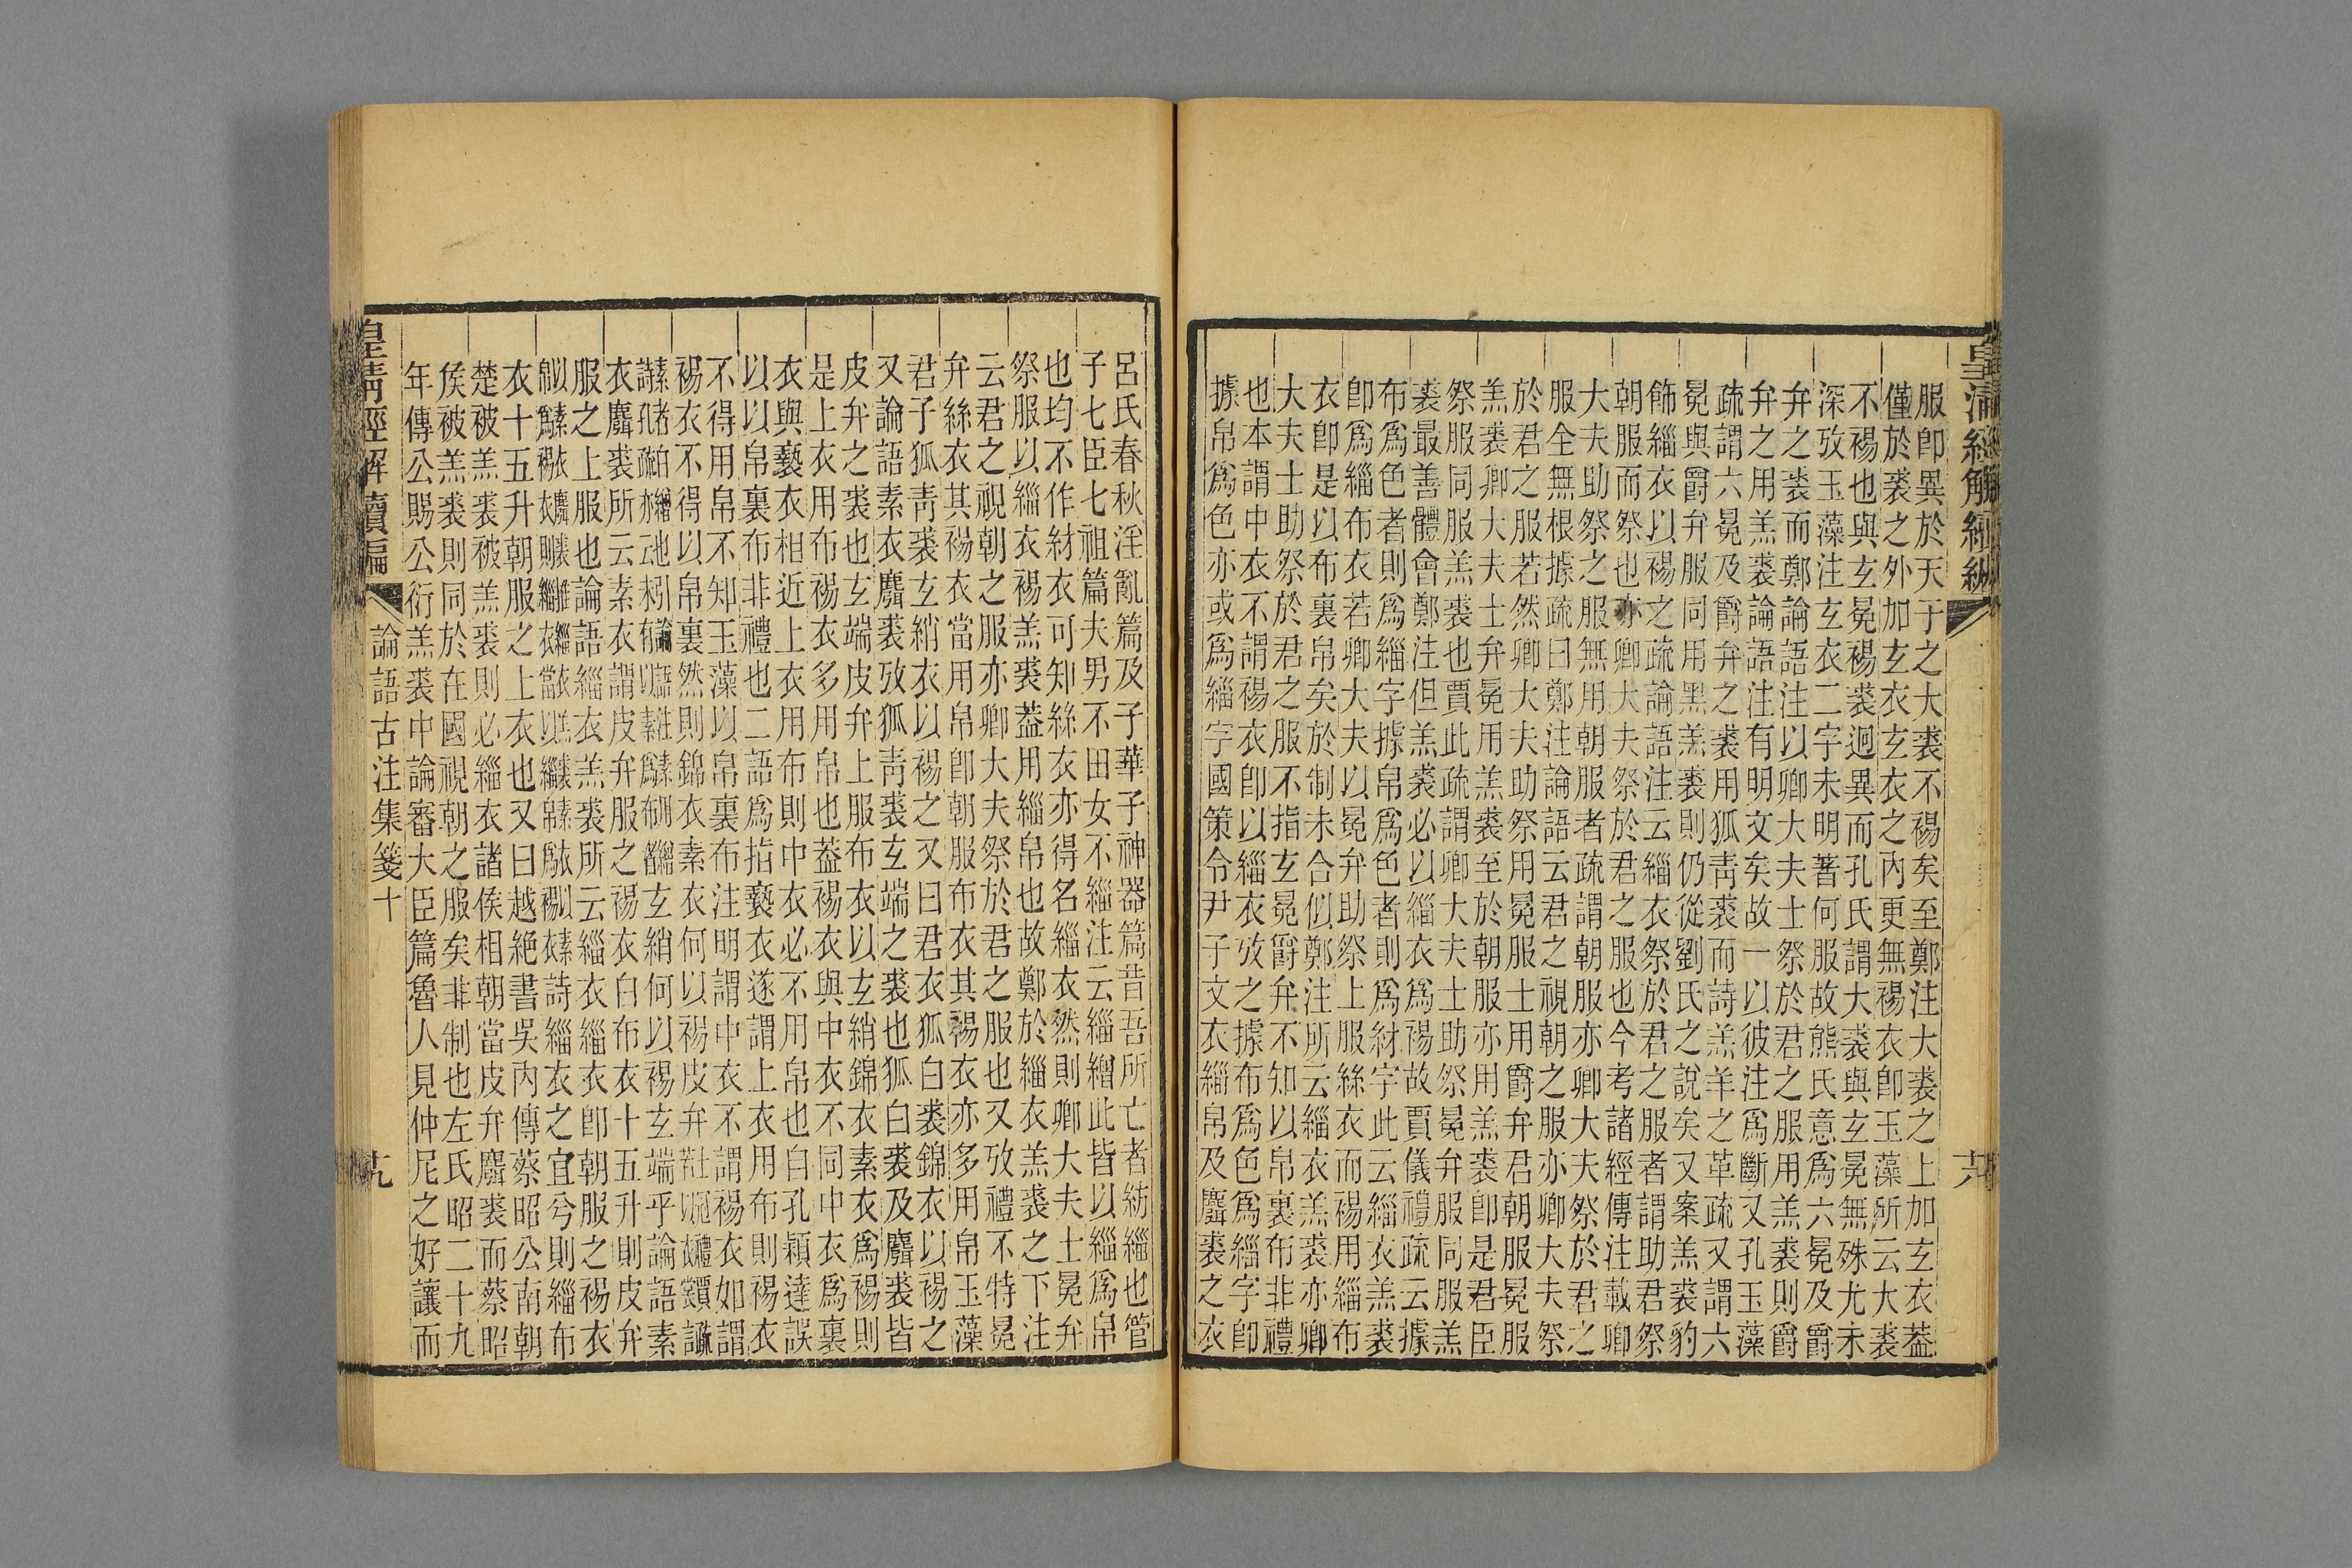 服卽異於天子之大裘不裼矣至鄭注大裘之上加玄衣葢
僅於裘之外加玄衣玄衣之內更無裼衣卽玉藻所云大裘
不裼也與玄冕裼裘迥異而孔氏謂大裘與玄冕無殊尤未
深攷玉藻注玄衣二字未明著何服故熊氏意爲六冕及爵
弁之裘而鄭論語注以卿大夫士祭於君之服用羔裘則爵
弁之用羔裘論語注有明文矣故一以彼注爲斷又孔玉藻
疏謂六冕及爵弁之裘用狐靑裘而詩羔羊之革疏又謂六
冕與爵弁服同用黑羔裘則仍從劉氏之說矣又案羔裘豹
飾緇衣以裼之疏論語注云緇衣祭於君之服者謂助君祭
朝服而祭也亦卿大夫祭於君之服也今考諸經傳注載卿
大夫助祭之服無用朝服者疏謂朝服亦卿大夫祭於君之
服全無根據疏曰鄭注論語云君之視朝之服亦卿大夫祭
於君之服若然卿大夫助祭用冕服士用爵弁君朝服冕服
羔裘卿大夫士弁冕用羔裘至於朝服亦用羔裘卽是君臣
祭服同服羔裘也賈此疏謂卿大夫士助祭冕弁服同服羔
裘最善體會鄭注但羔裘必以緇衣爲裼故賈儀禮疏云據
布爲色者則爲緇字據帛爲色者則爲材字此云緇衣羔裘
卽爲緇布衣若卿大夫以冕弁助祭上服絲衣而裼用緇布
衣卽是以布裏帛矣於制未合似鄭注所云緇衣羔裘亦卿
大夫士助祭於君之服不指玄冕爵弁不知以帛裏布非禮
也本謂中衣不謂裼衣卽以緇衣攷之據布爲色爲緇字卽
據帛爲色亦或爲緇字國策令尹子文衣緇帛及麛裘之衣
呂氏春秋淫亂篇及子華子神器篇昔吾所亡者紡緇也管
子七臣七祖篇夫男不田女不緇注云緇繒此皆以緇爲帛
也均不作材衣可知絲衣亦得名緇衣然則卿大夫士冕弁
祭服以緇衣裼羔裘葢用緇帛也故鄭於緇衣羔裘之下注
云君之視朝之服亦卿大夫祭於君之服也又攷禮不特冕
弁絲衣其裼衣當用帛卽朝服布衣其裼衣亦多用帛玉藻
君子狐靑裘玄綃衣以裼之又曰君衣狐白裘錦衣以裼之
又論語素衣麛裘攷狐靑裘玄端之裘也狐白裘及麛裘皆
皮弁之裘也玄端皮弁上服布衣以玄綃錦衣素衣爲裼則
是上衣用布裼衣多用帛也葢裼衣與中衣不同中衣爲裏
衣與褻衣相近上衣用布則中衣必不用帛也自孔穎達誤
以以帛裏布非禮也二語爲指褻衣遂謂上衣用布則裼衣
不得用帛不知玉藻以帛裏布注明謂中衣不謂裼衣如謂
裼衣不得以帛裏然則錦衣素衣何以裼皮弁
衣麛裘所云素衣謂皮弁服之裼衣白布衣十五升則皮弁
服之上服也論語緇衣羔裘所云緇衣緇衣卽朝服之裼衣
衣十五升朝服之上衣也又曰越絕書吳內傳蔡昭公南朝
楚被羔裘被羔裘則必緇衣諸侯相朝當皮弁麛裘而蔡昭
侯被羔裘則同於在國視朝之服矣非制也左氏昭二十九
年傳公賜公衍羔裘中論審大臣篇魯人見仲尼之好讓而
皇淸經解續編
論語古注集箋十